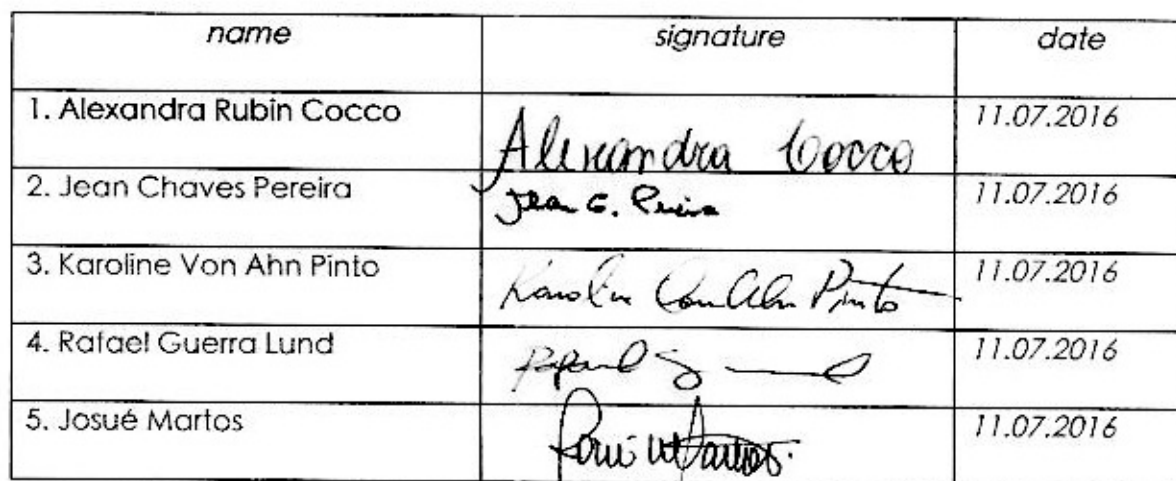 name signature date
1. Alexandra Rubin Cocco Alexandra Cocco 11.07.2016
2. Jean Chaves Pereira Jean C. Pereira 11.07.2016
3. Karoline Von Ahn Pinto Karoline Von Ahn Pinto 11.07.2016
4. Rafael Guerra Lund Rafael G 11.07.2016
5. Josué Martos Josué Martos 11.07.2016